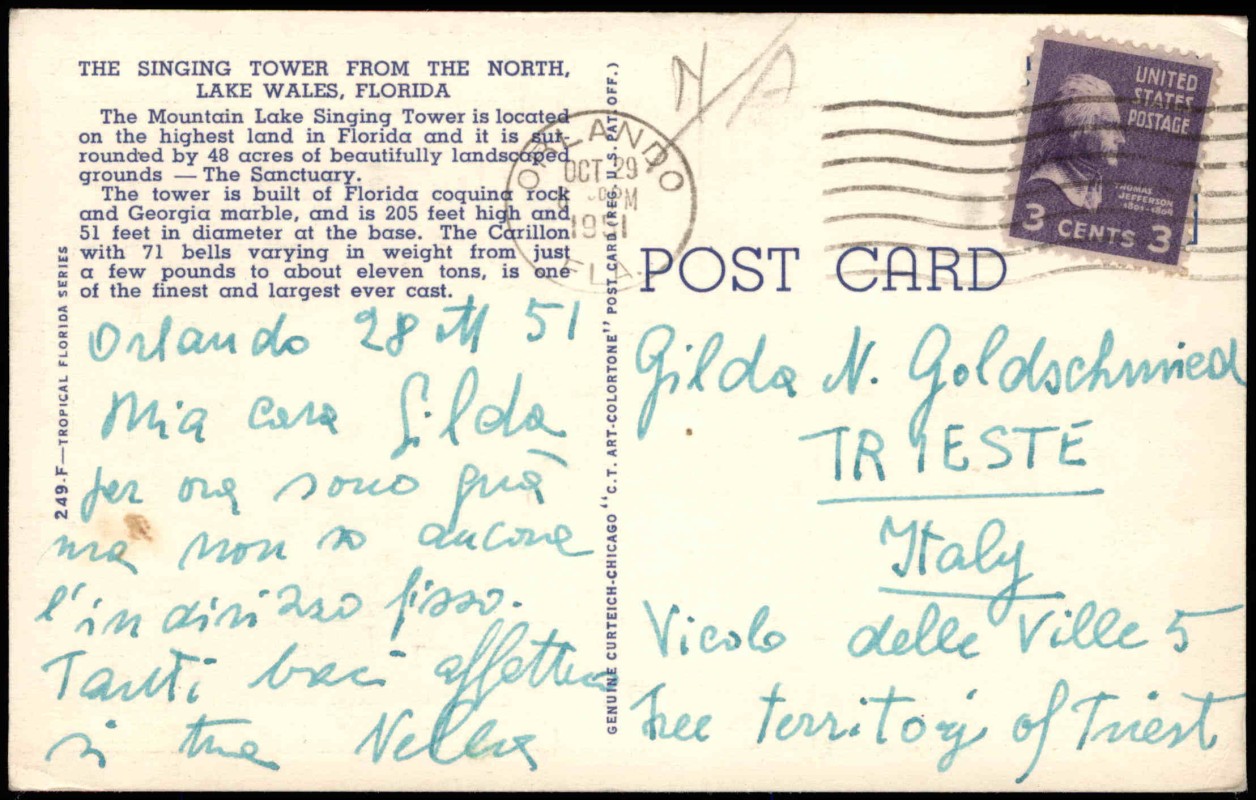 THE SINGING TOWER FROM THE NORTH,
LAKE WALES, FLORIDA
The Mountain Lake Singing Tower is located
on the highest land in Florida and it is sur-
rounded by 48 acres of beautifully landscaped
grounds — The Sanctuary.
The tower is built of Florida coquina rock
and Georgia marble, and is 205 feet high and
51 feet in diameter at the base. The Carillon
with 71 bells varying in weight from just
a few pounds to about eleven tons, is one
of the finest and largest ever cast.
249-F—TROPICAL FLORIDA SERIES
Orlando 28 51
Mia cara Gilda
per ora sono quà
ma non so ancora
l'indirizzo fisso.
Tanti baci affettuo
si tua Nella
GENUINE CURTEICH-CHICAGO "C.T. ART-COLORTONE" POST CARD (REG. U.S. PAT. OFF.)
N/A
ORLANDO
OCT 29
PM
1951
FLA.
UNITED
STATES
POSTAGE
THOMAS
JEFFERSON
1801-1809
3 CENTS 3
POST CARD
Gilda N. Goldschmied
TRIESTE
Italy
Vicolo delle Ville 5
Free territory of Triest